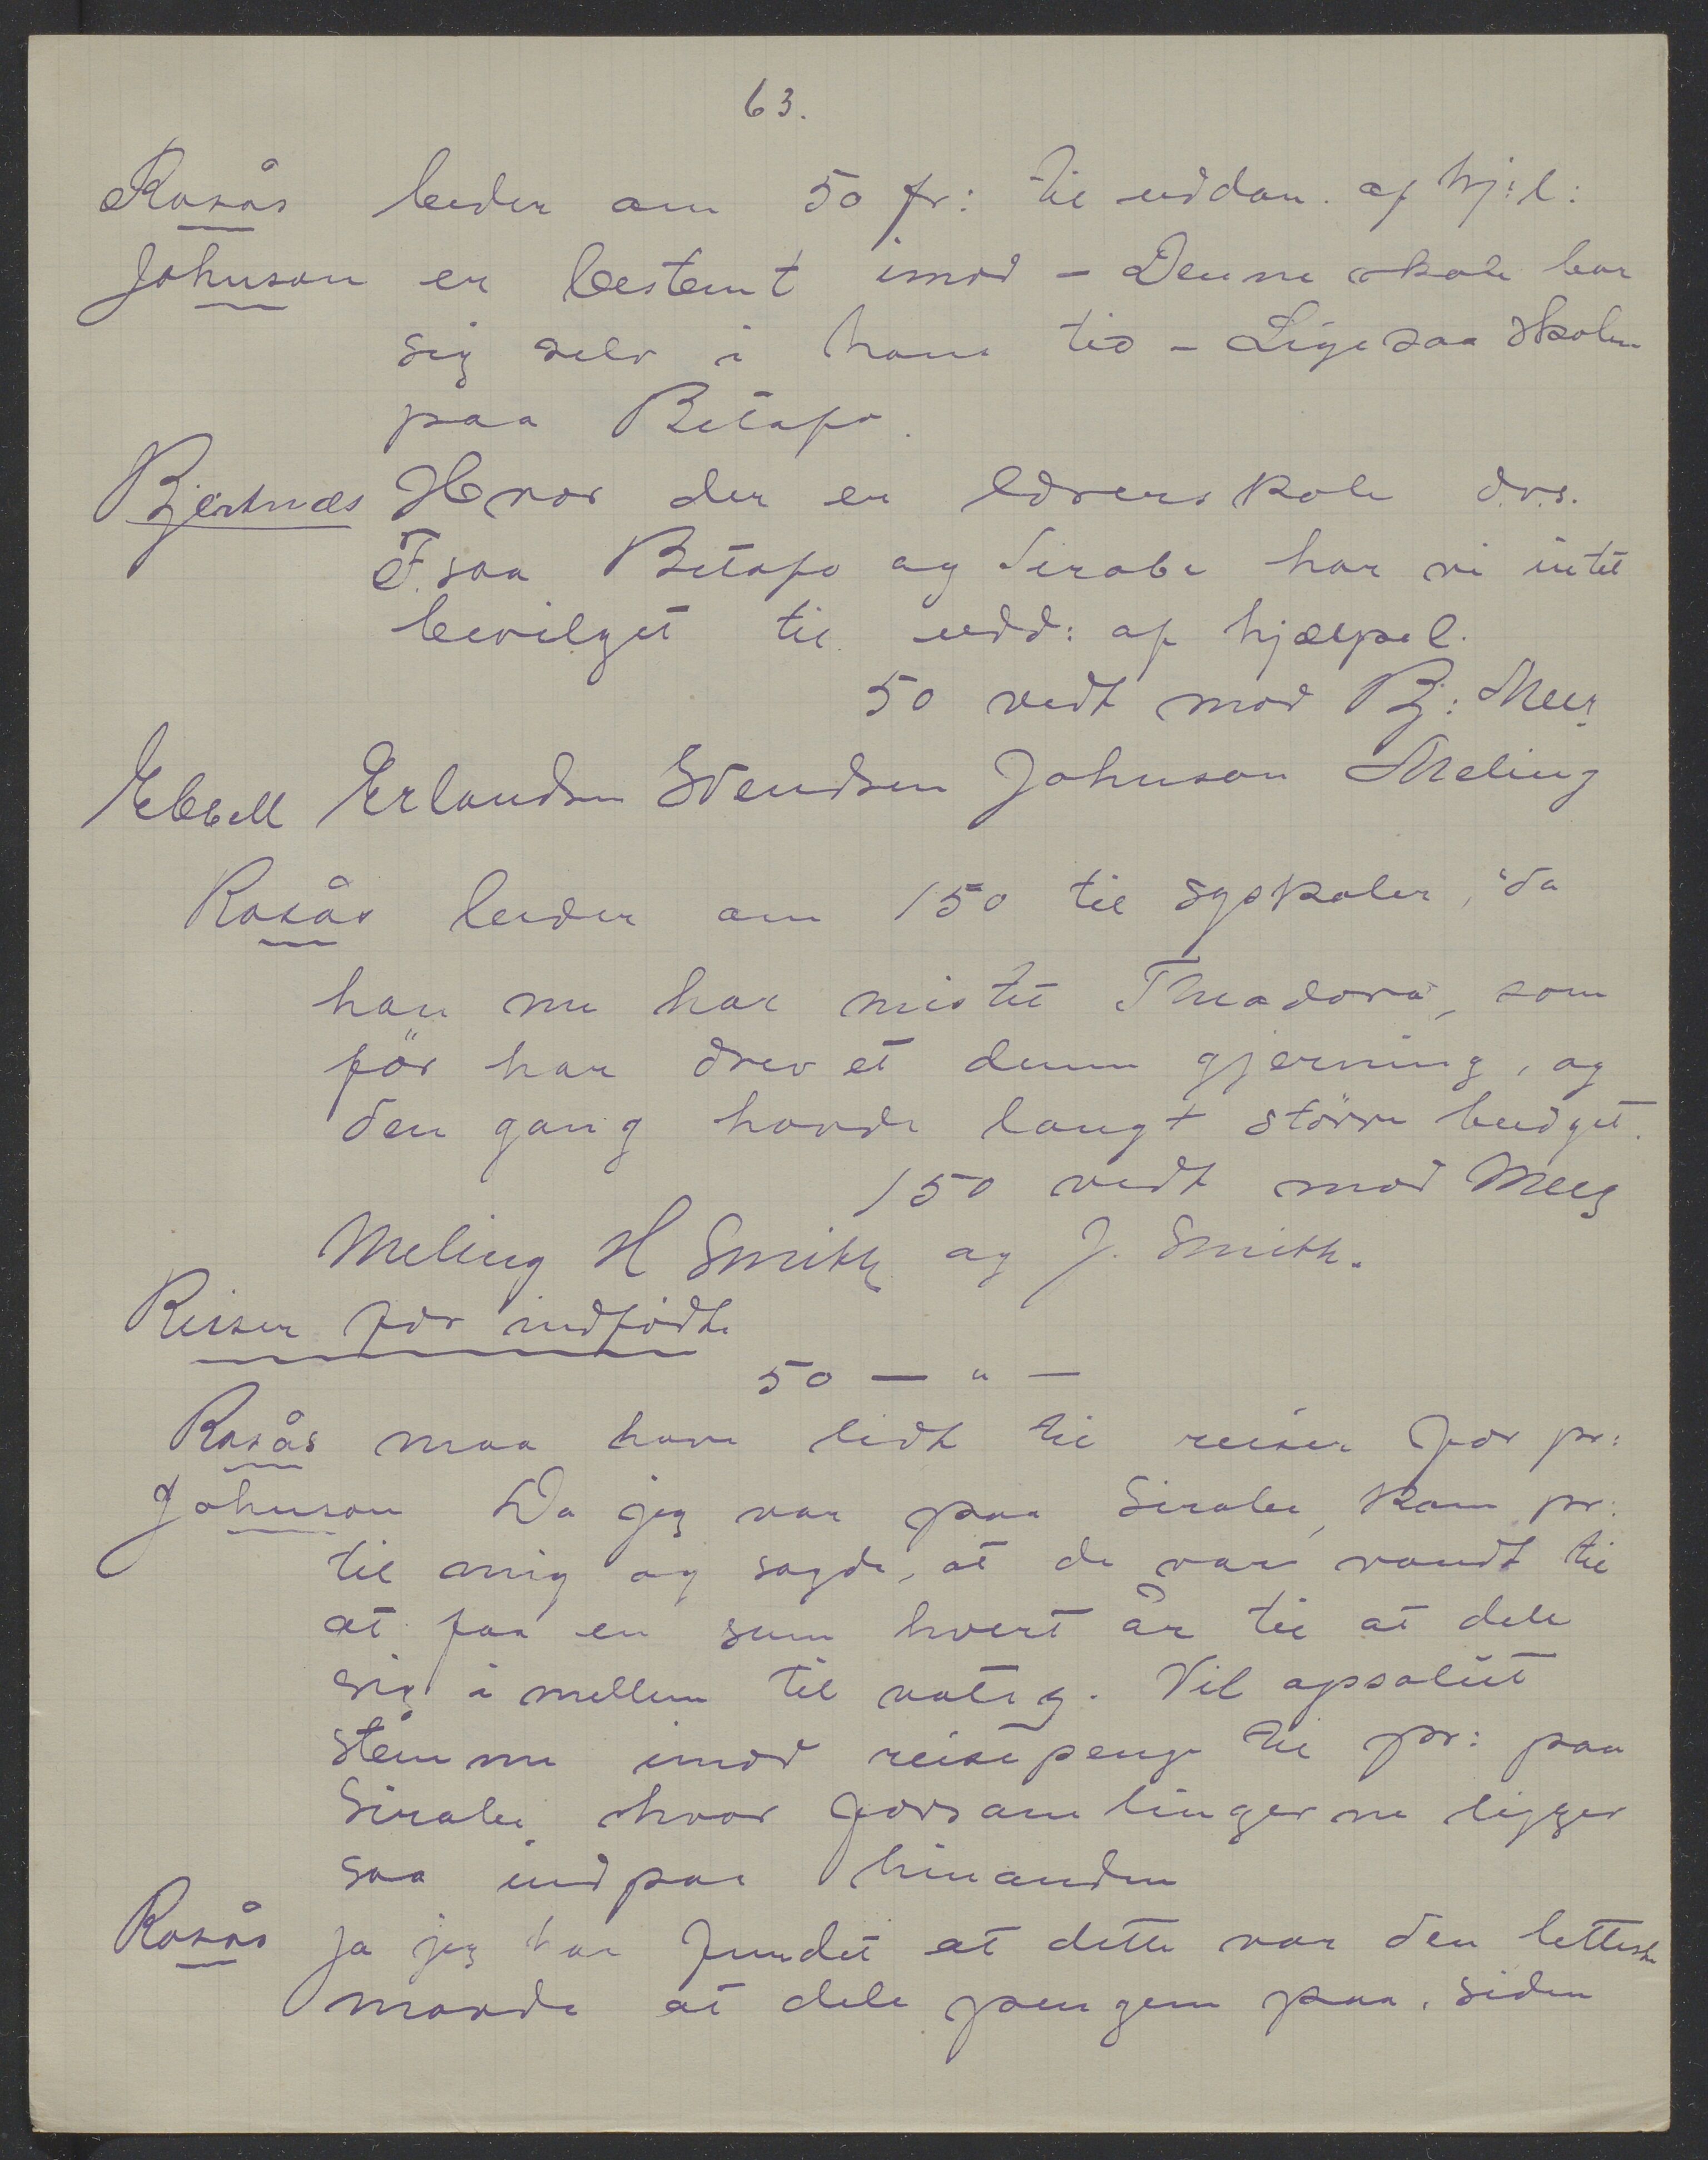 63.
Rosås beder om 50 fr: til uddan. af hj: l:
Johnson er bestemt imod – Denne skole bar
sig selv i hans tid – Ligesaa skolen
paa Betafo.
Bjertnæs Hvor der er lærerskole dvs.
F.soa Betafo og Sirabe har vi intet
bevilget til udd: af hjælpel.
50 vedt mod Bj: Meeg
Ebbell Erlandsen Svendsen Johnson Meling
Rosås beder om 150 til syskolen, da
han nu har mistet Theodora, som
før har drevet denne gjerning, og
den gang havde langt større budget.
150 vedt mod Meeg
Meling H Smith og J. Smith.
Reiser for indfødte
50 — " —
Rosås maa have lidt til reiser for pr:
Johnson Da jeg var paa Sirabe, kom pr:
til mig og sagde, at de var vandt til
at faa en sum hvert år til at dele
sig i mellem til vatsy. Vil apsolut
stemme imod reisepenge til pr: paa
Sirabe, hvor forsamlingerne ligger
saa indpaa hinanden
Rosås Ja jeg har fundet at dette var den letteste
maade at dele pengene paa, siden